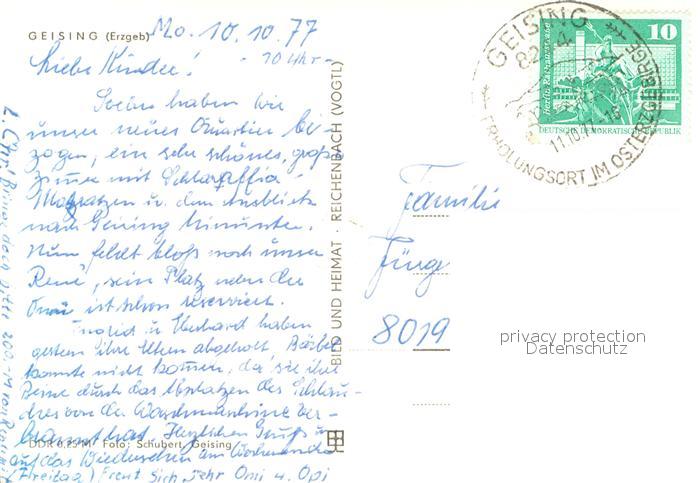 GEISING (Erzgeb)
Mo. 10.10.77
10 Uhr -
Liebe Kinder!
Soeben haben wir
unser neues Quartier be-
zogen, ein sehr schönes, groß
Zimmer mit Schlaraffia
Matratzen u. dem Ausblick
nach Geising hinunter.
Nun fehlt bloß noch unser
René, sein Platz neben der
Omi ist schon reserviert.
Ingrid u. Eberhard haben
gestern ihre Eltern abgeholt, Bärbel
konnte nicht kommen, da sie ihre
Beine durch das Abplatzen des Schlau-
ches von der Waschmaschine ver-
brannt hat. Herzlichen Gruß u.
auf das Wiedersehen am Wochenende
(Freitag) freut sich sehr Omi u. Opi
DDR 0,25 M Foto: Schubert, Geising
BILD UND HEIMAT · REICHENBACH (VOGTL)
Familie
Jüng
8019
GEISING
11.10.77
ERHOLUNGSORT IM OSTERZGEBIRGE
10
DEUTSCHE DEMOKRATISCHE REPUBLIK
privacy protection
Datenschutz